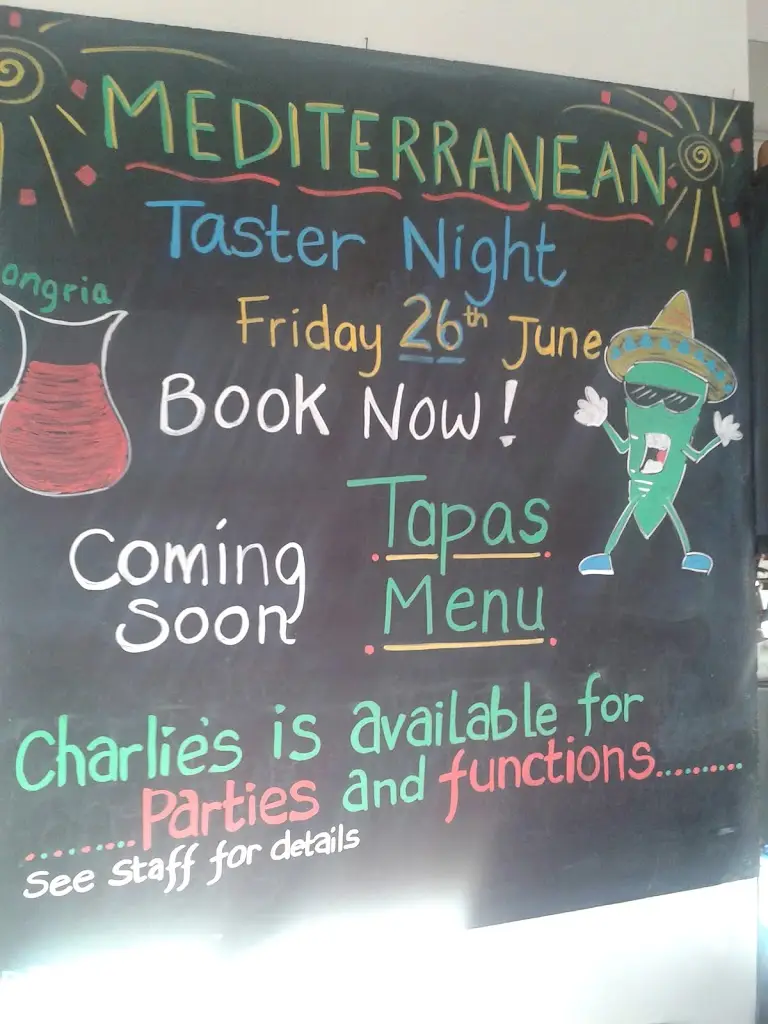 MEDITERRANEAN
Taster Night
angria
Friday 26th June
BOOK NOW!
Coming
Soon
Tapas
Menu
Charlie's is available for
.........Parties and functions..........
See Staff for details